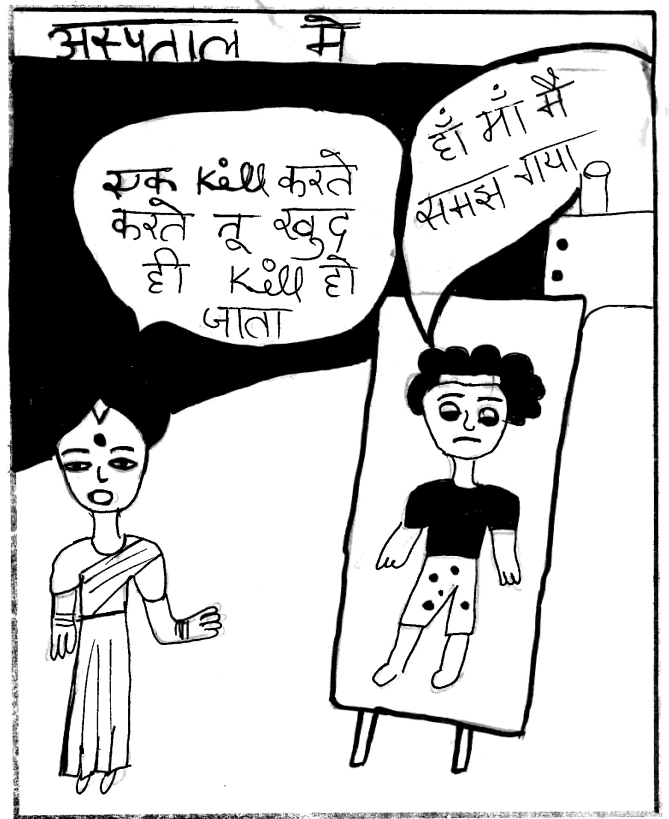 अस्पताल में
एक Kill करते
करते तू खुद
ही Kill हो
जाता
हाँ माँ मैं
समझ गया